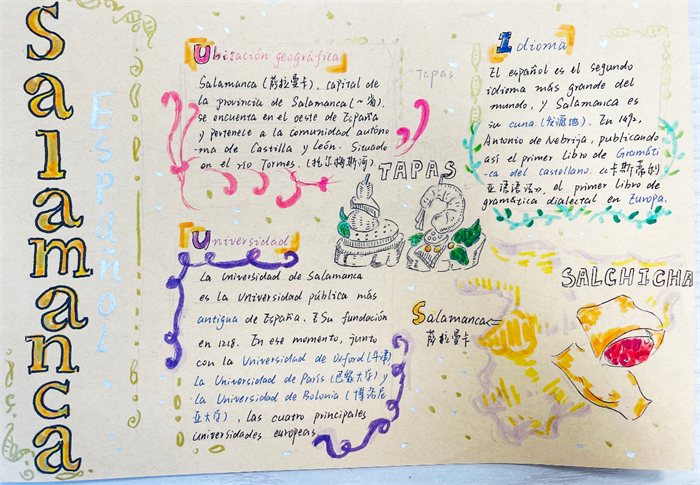 Salamanca
Español
Ubicación geográfica
Salamanca (萨拉曼卡), capital de
la provincia de Salamanca (~省),
se encuenta en el oeste de España
y pertenece a la comunidad autóno
-ma de Castilla y León. Situado
en el río Tormes. (托尔梅斯河)
Tapas
TAPAS
Idioma
El español es el segundo
idioma más grande del
mundo, y Salamanca es
su cuna. (发源地). En 1492,
Antonio de Nebrija, publicando
así el primer Libro de Gramáti
ca del castellano. 《卡斯蒂利
亚语语法》, el primer libro de
gramática dialectal en Europa.
Universidad
La Universidad de Salamanca
es la Universidad pública más
antigua de España. Su fundación
en 1218. En ese momento, junto
con la Universidad de Oxford (牛津)
la Universidad de París (巴黎大学) y
la Universidad de Bolonia (博洛尼
亚大学), las cuatro principales
universidades europeas
Salamanca
萨拉曼卡
SALCHICHA